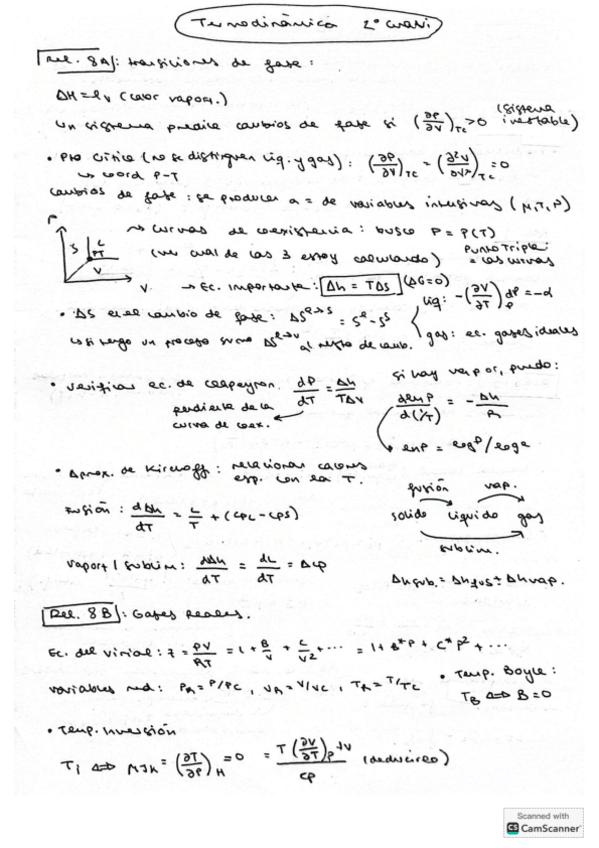 Termodinámica 2º cuatri
Rel. 8A: transiciones de fase:
ΔH = lv (calor vaport.)
Un sistema predice cambios de fase si (∂P/∂V)Tc > 0 (sistema inestable)
• Pto crítico (no se distinguen líq. y gas): (∂P/∂V)TC = (∂²V/∂V²)TC = 0
↳ coord P-T
Cambios de fase: se producen a = de variables intensivas (μ, T, P)
P
S L
PT
V
V.
→ curvas de coexistencia: busco P = P(T)
(ver cual de las 3 estoy calculando)
Punto Triple = las curvas
→ Ec. importante: Δh = TΔS (ΔG=0)
• ΔS en el cambio de fase: ΔS^l→s = S^l - S^s
líq: -(∂V/∂T)P dP = -α
gas: ec. gases ideales
↳ si tengo un proceso sumo ΔS^l→v al resto de camb.
• Verificar ec. de Clapeyron. dP/dT = Δh/TΔV
pendiente de la curva de coex.
si hay vapor, puedo:
dlnP/d(1/T) = -Δh/R
lnP = logP/loge
• Aprox. de Kirchoff: relacionar calores esp. con la T.
Fusión: dΔh/dT = L/T + (CpL - CpS)
fusión vap.
solido líquido gas
sublim.
vaport / sublim: dΔh/dT = dL/dT = Δcp
Δhsub. = Δhfus + Δhvap.
Rel. 8B: Gases Reales.
Ec. del virial: z = PV/RT = 1 + B/V + C/V² + ... = 1 + B*P + C*P² + ...
variables red: PR = P/PC, VR = V/VC, TR = T/TC
• Temp. Boyle:
TB ⟺ B=0
• Temp. Inversión
Ti ⟺ μJK = (∂T/∂P)H = 0 = T(∂V/∂T)P +V / cp (deducirlo)
Scanned with
CS CamScanner